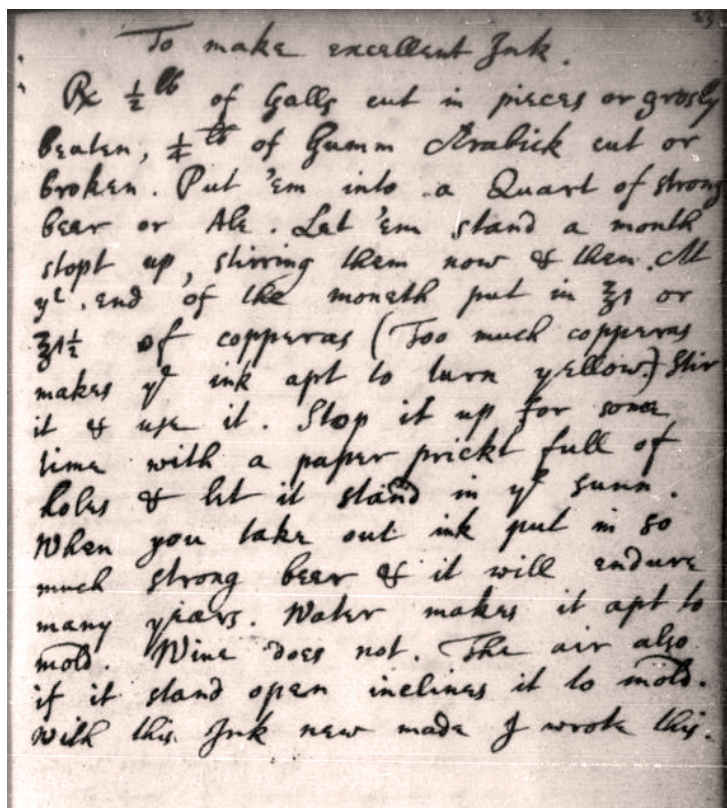 23
To make excellent Ink.
℞ ½ lb of Galls cut in pieces or grosly
beaten, ¼ lb of Gumm Arabick cut or
broken. Put 'em into a Quart of strong
beer or Ale. Let 'em stand a month
stopt up, stirring them now & then. At
yᵉ. end of the moneth put in ℥1 or
℥1½ of copperas (Too much copperas
makes yᵉ ink apt to turn yellow.) Stir
it & use it. Stop it up for some
time with a paper prickt full of
holes & let it stand in yᵉ sunn.
When you take out ink put in so
much strong beer & it will endure
many years. Water makes it apt to
mold. Wine does not. The air also
if it stand open inclines it to mold.
With this Ink new made I wrote this.